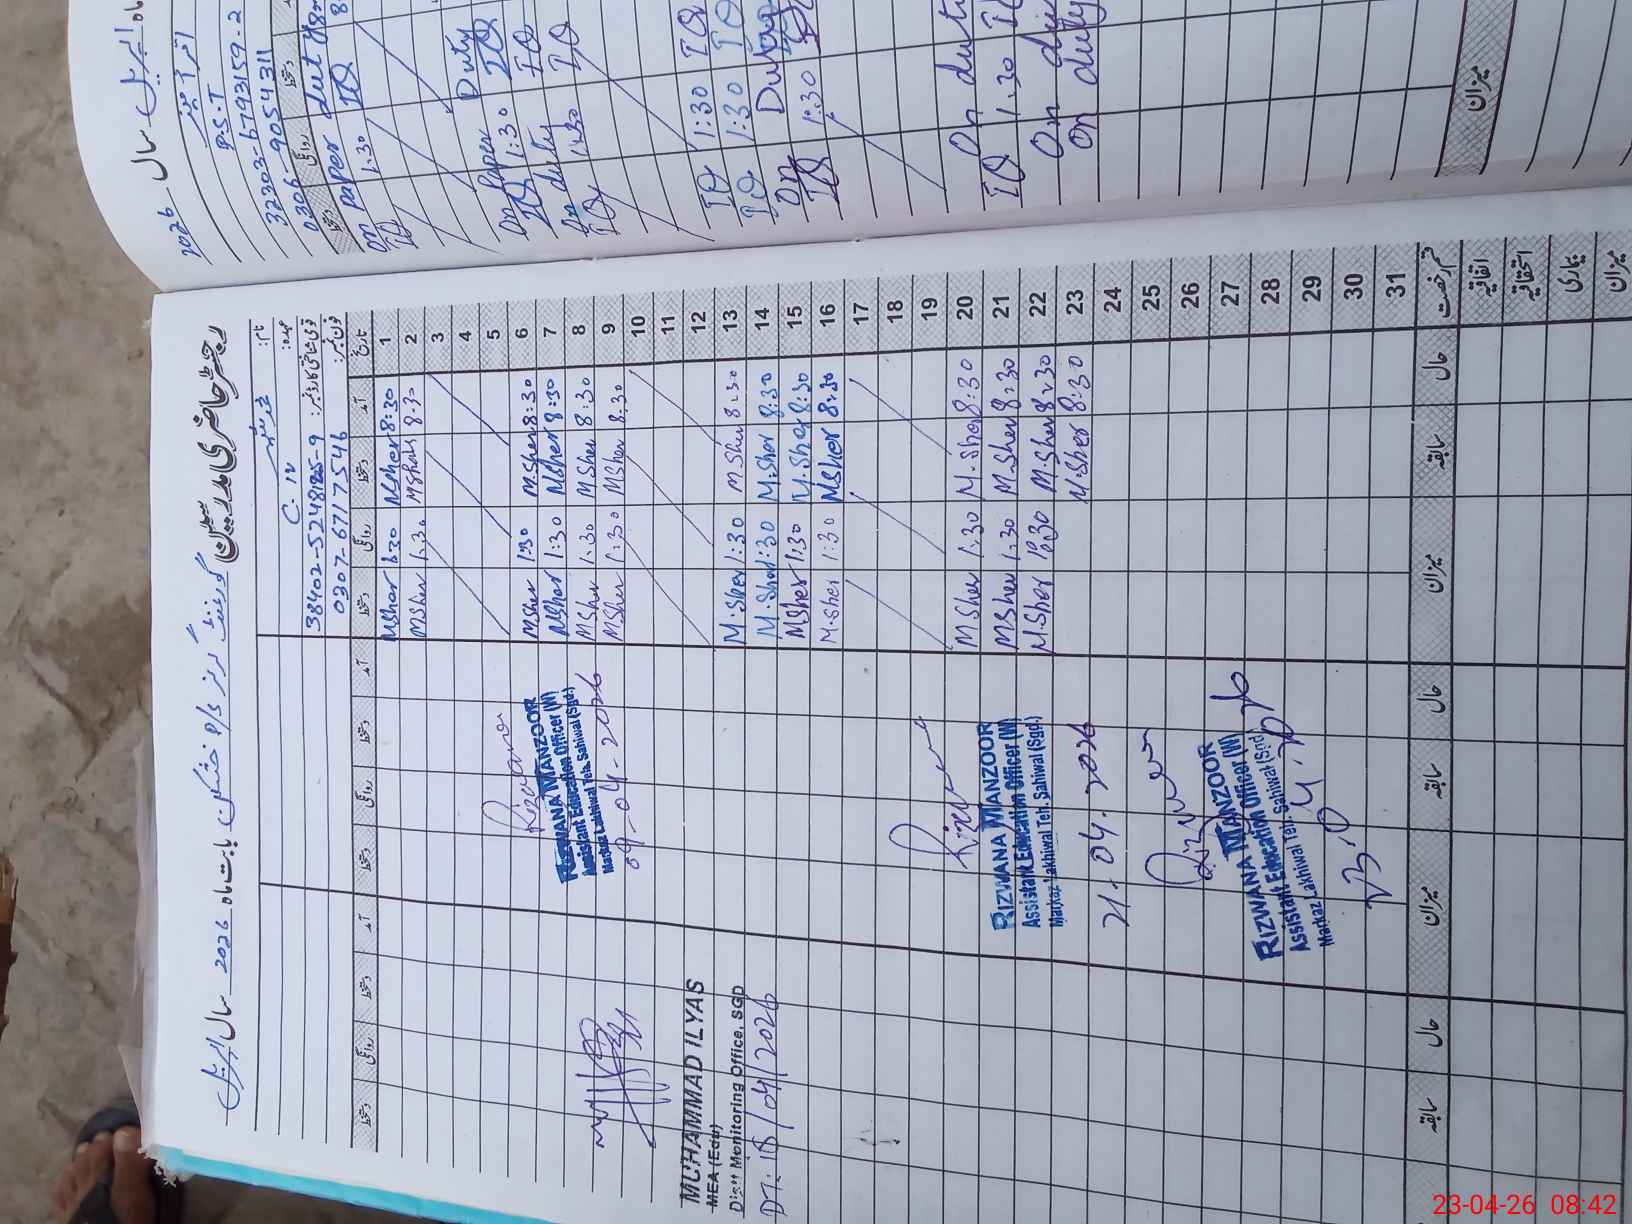 رجسٹر حاضری مدرسین گورنمنٹ گرلز P/S بابت ماہ 2026 سال اپریل
نام:
عہدہ: C. IV
قومی شناختی کارڈ نمبر: 38402-5248185-9
فون نمبر: 0307-6717546
تاریخ آمد دستخط روانگی دستخط آمد دستخط روانگی دستخط آمد دستخط روانگی دستخط
1 8:30 MSher 1:30 MSher
2 8:30 MSher 1:30 MSher
3
4
5
6 8:30 M.Sher 1:30 MSher
7 8:30 MSher 1:30 MSher
8 8:30 MSher 1:30 MSher
9 8:30 MSher 1:30 MSher
10
11
12
13 8:30 M.Sher 1:30 M.Sher
14 8:30 M.Sher 1:30 M.Sher
15 8:30 M.Sher 1:30 MSher
16 8:30 MSher 1:30 M.Sher
17
18
19
20 8:30 M.Sher 1:30 MSher
21 8:30 M.Sher 1:30 MSher
22 8:30 M.Sher 1:30 M.Sher
23 8:30 M.Sher
24
25
26
27
28
29
30
31
قسم رخصت حال سابقہ میزان حال سابقہ میزان حال سابقہ
اتفاقیہ
استحقاقیہ
بیماری
میزان
Rizwana
RIZWANA MANZOOR
Assistant Education Officer (W)
Markaz Lakhiwal Teh. Sahiwal (Sgd.)
09-04-2026
RIZWANA MANZOOR
Assistant Education Officer (W)
Markaz Lakhiwal Teh. Sahiwal (Sgd.)
21.04.2026
RIZWANA MANZOOR
Assistant Education Officer (W)
Markaz Lakhiwal Teh. Sahiwal (Sgd.)
23.04.26
MUHAMMAD ILYAS
MEA (Edu)
Distt Monitoring Office, SGD
DT: 15/04/2026
ماہ اپریل سال 2026
P.S.T
32303-6793159-2
0306-9054311
دستخط روانگی دستخط
On paper duty
IQ 1:30 IQ
Duty
On paper IQ
IQ 1:30 IQ
On duty IQ
IQ 1:30
IQ 1:30 IQ
IQ 1:30 IQ
On Duty
IQ 1:30
On duty
IQ 1:30 IQ
On duty
On duty
میزان
23-04-26 08:42